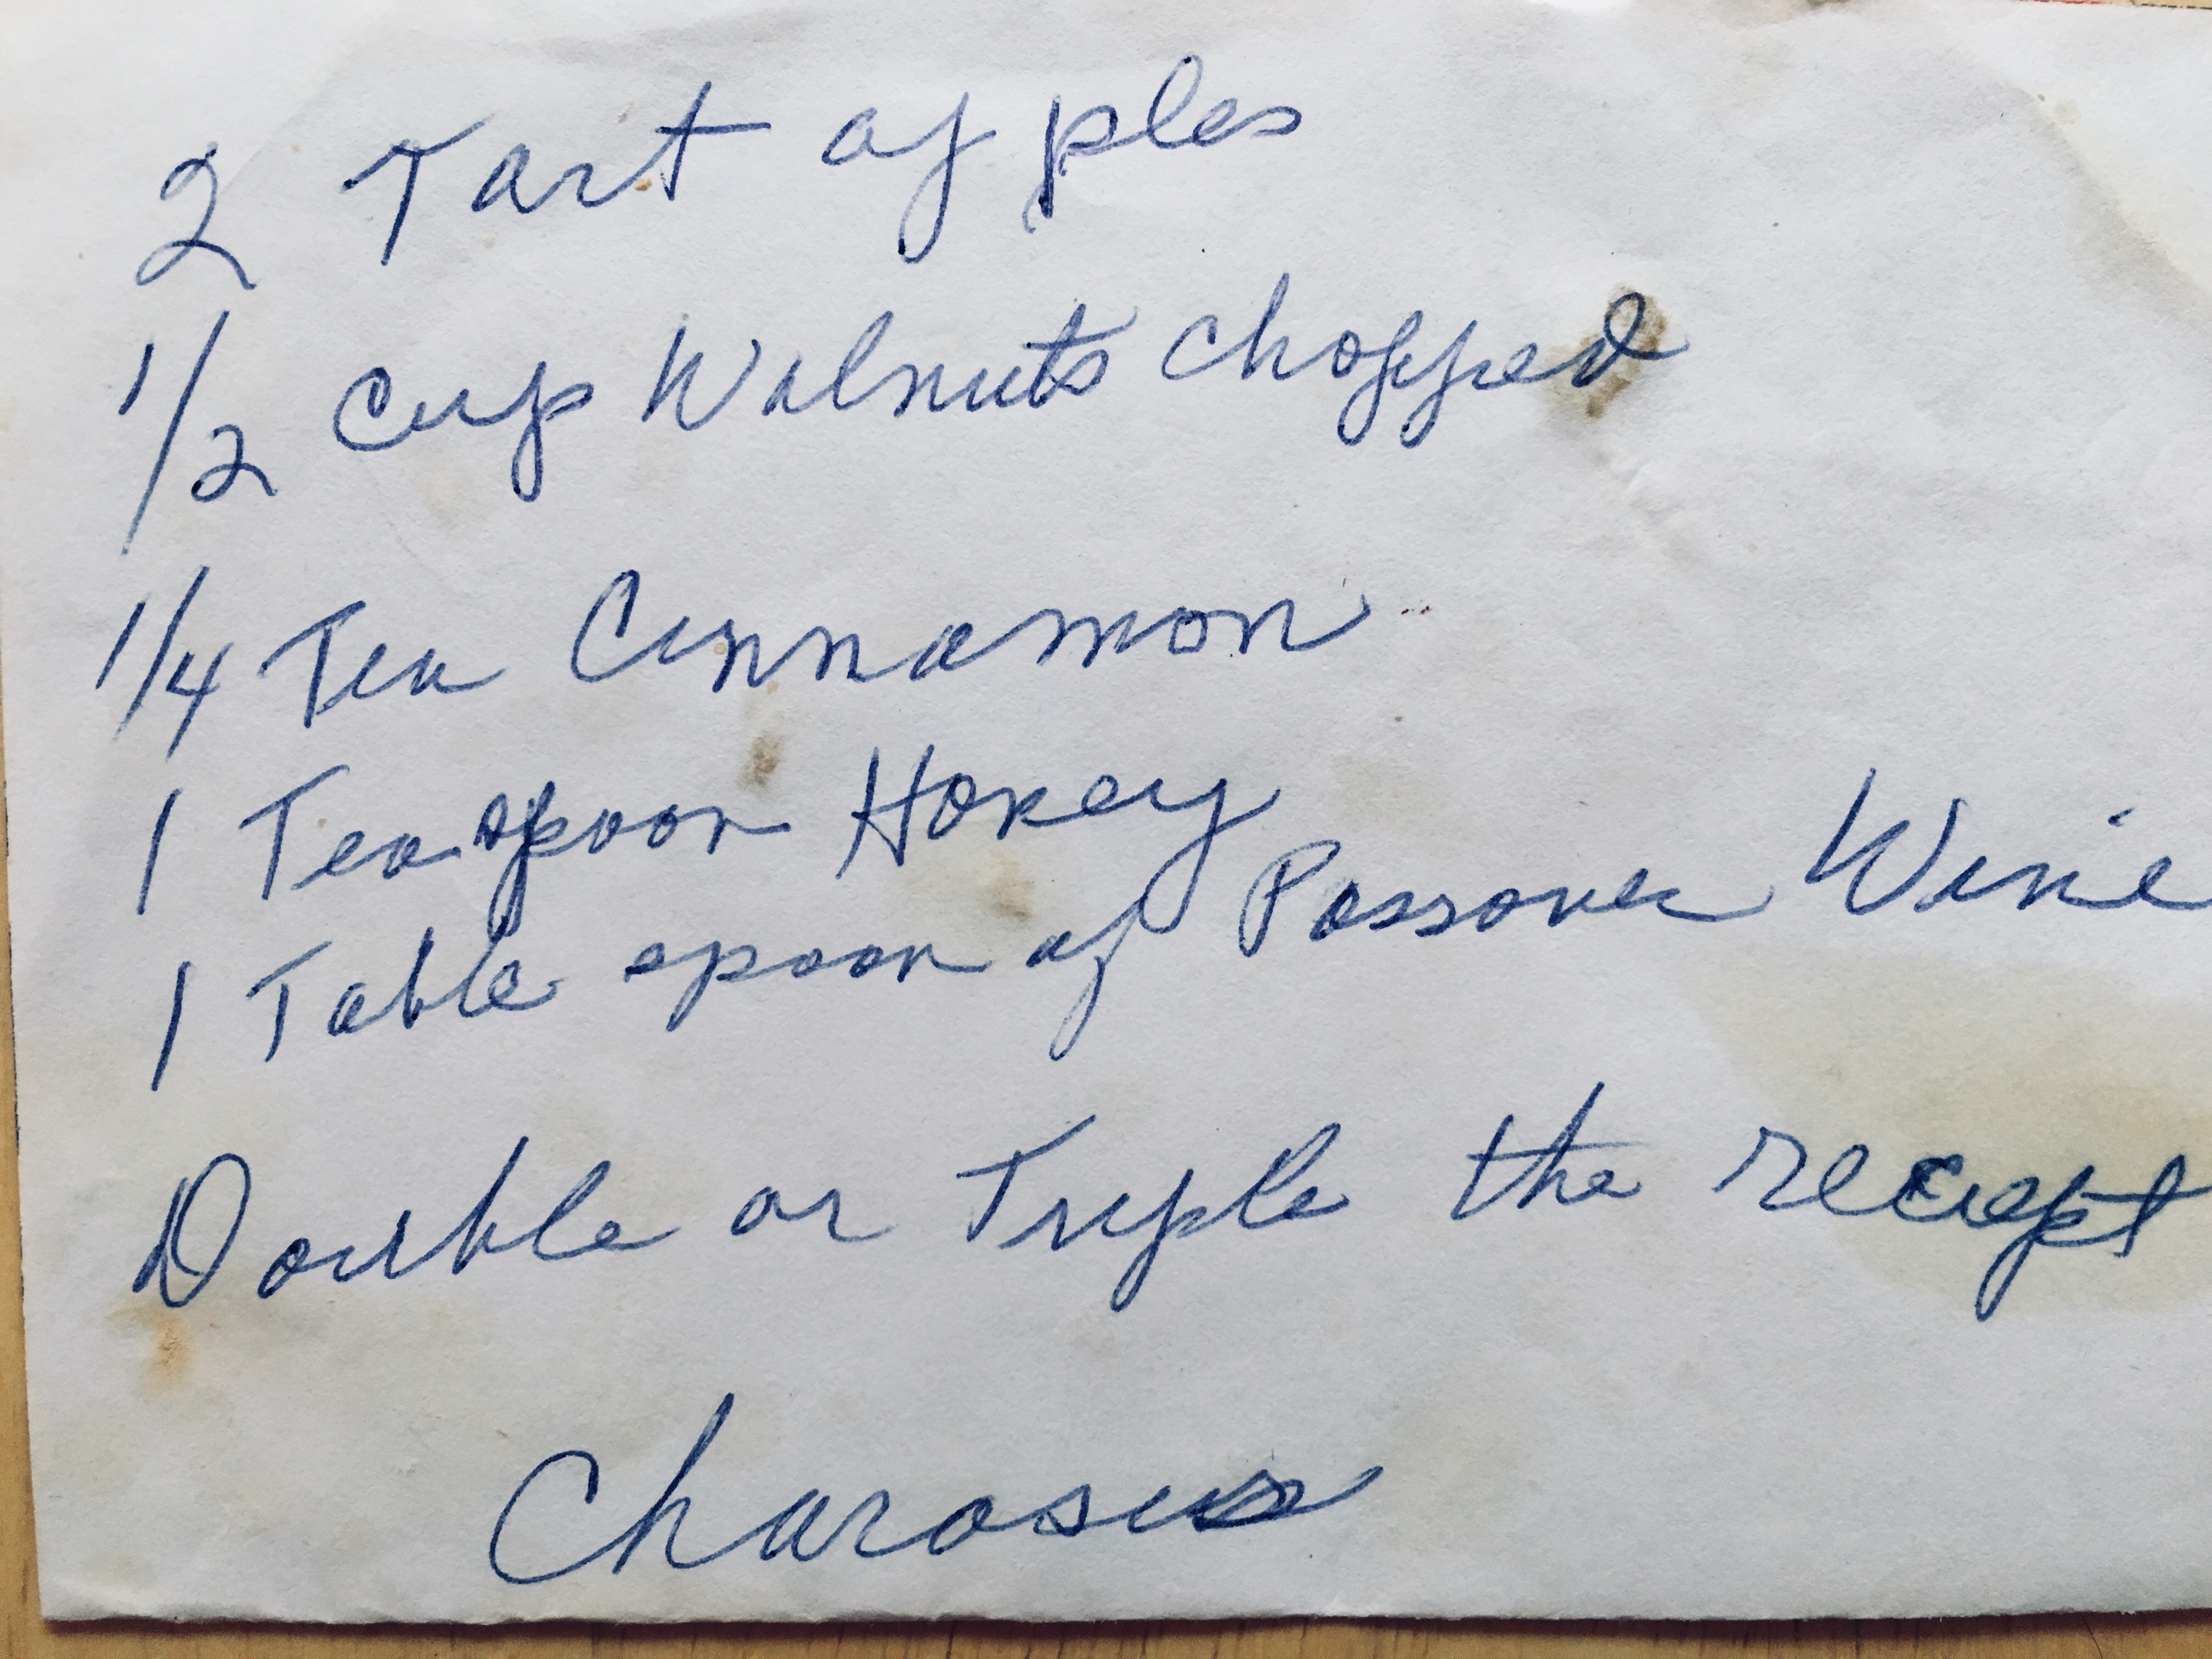 2 Tart apples
1/2 Cup Walnuts chopped
1/4 Tea Cinnamon
1 Teaspoon Honey
1 Table spoon of Passover Wine
Double or Triple the reciept
Charosis